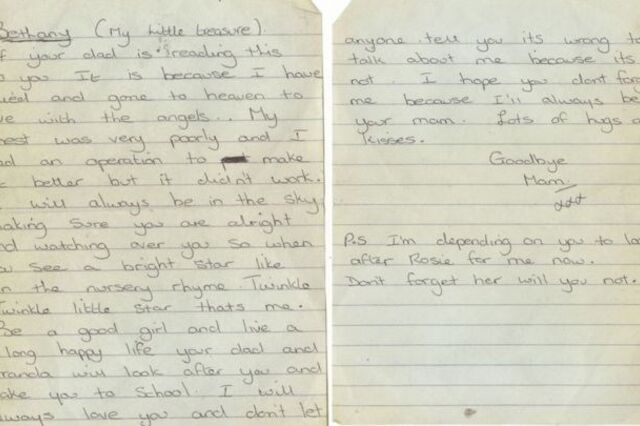 Bethany (My little treasure)
f your dad is reading this
o you It is because I have
died and gone to heaven to
ve with the angels.. My
hest was very poorly and I
ad an operation to make
t better but it didn't work.
will always be in the sky
making sure you are alright
nd watching over you so when
ou see a bright star like
n the nursery rhyme Twinkle
Twinkle little star thats me.
Be a good girl and live a
long happy life your dad and
randa will look after you and
ake you to School. I will
lways love you and don't let
anyone tell you its wrong to
talk about me because its
not. I hope you dont for
me because I'll always be
your mam. Lots of hugs a
kisses.
Goodbye
Mam
xxx
P.S I'm depending on you to lo
after Rosie for me now.
Don't forget her will you not.